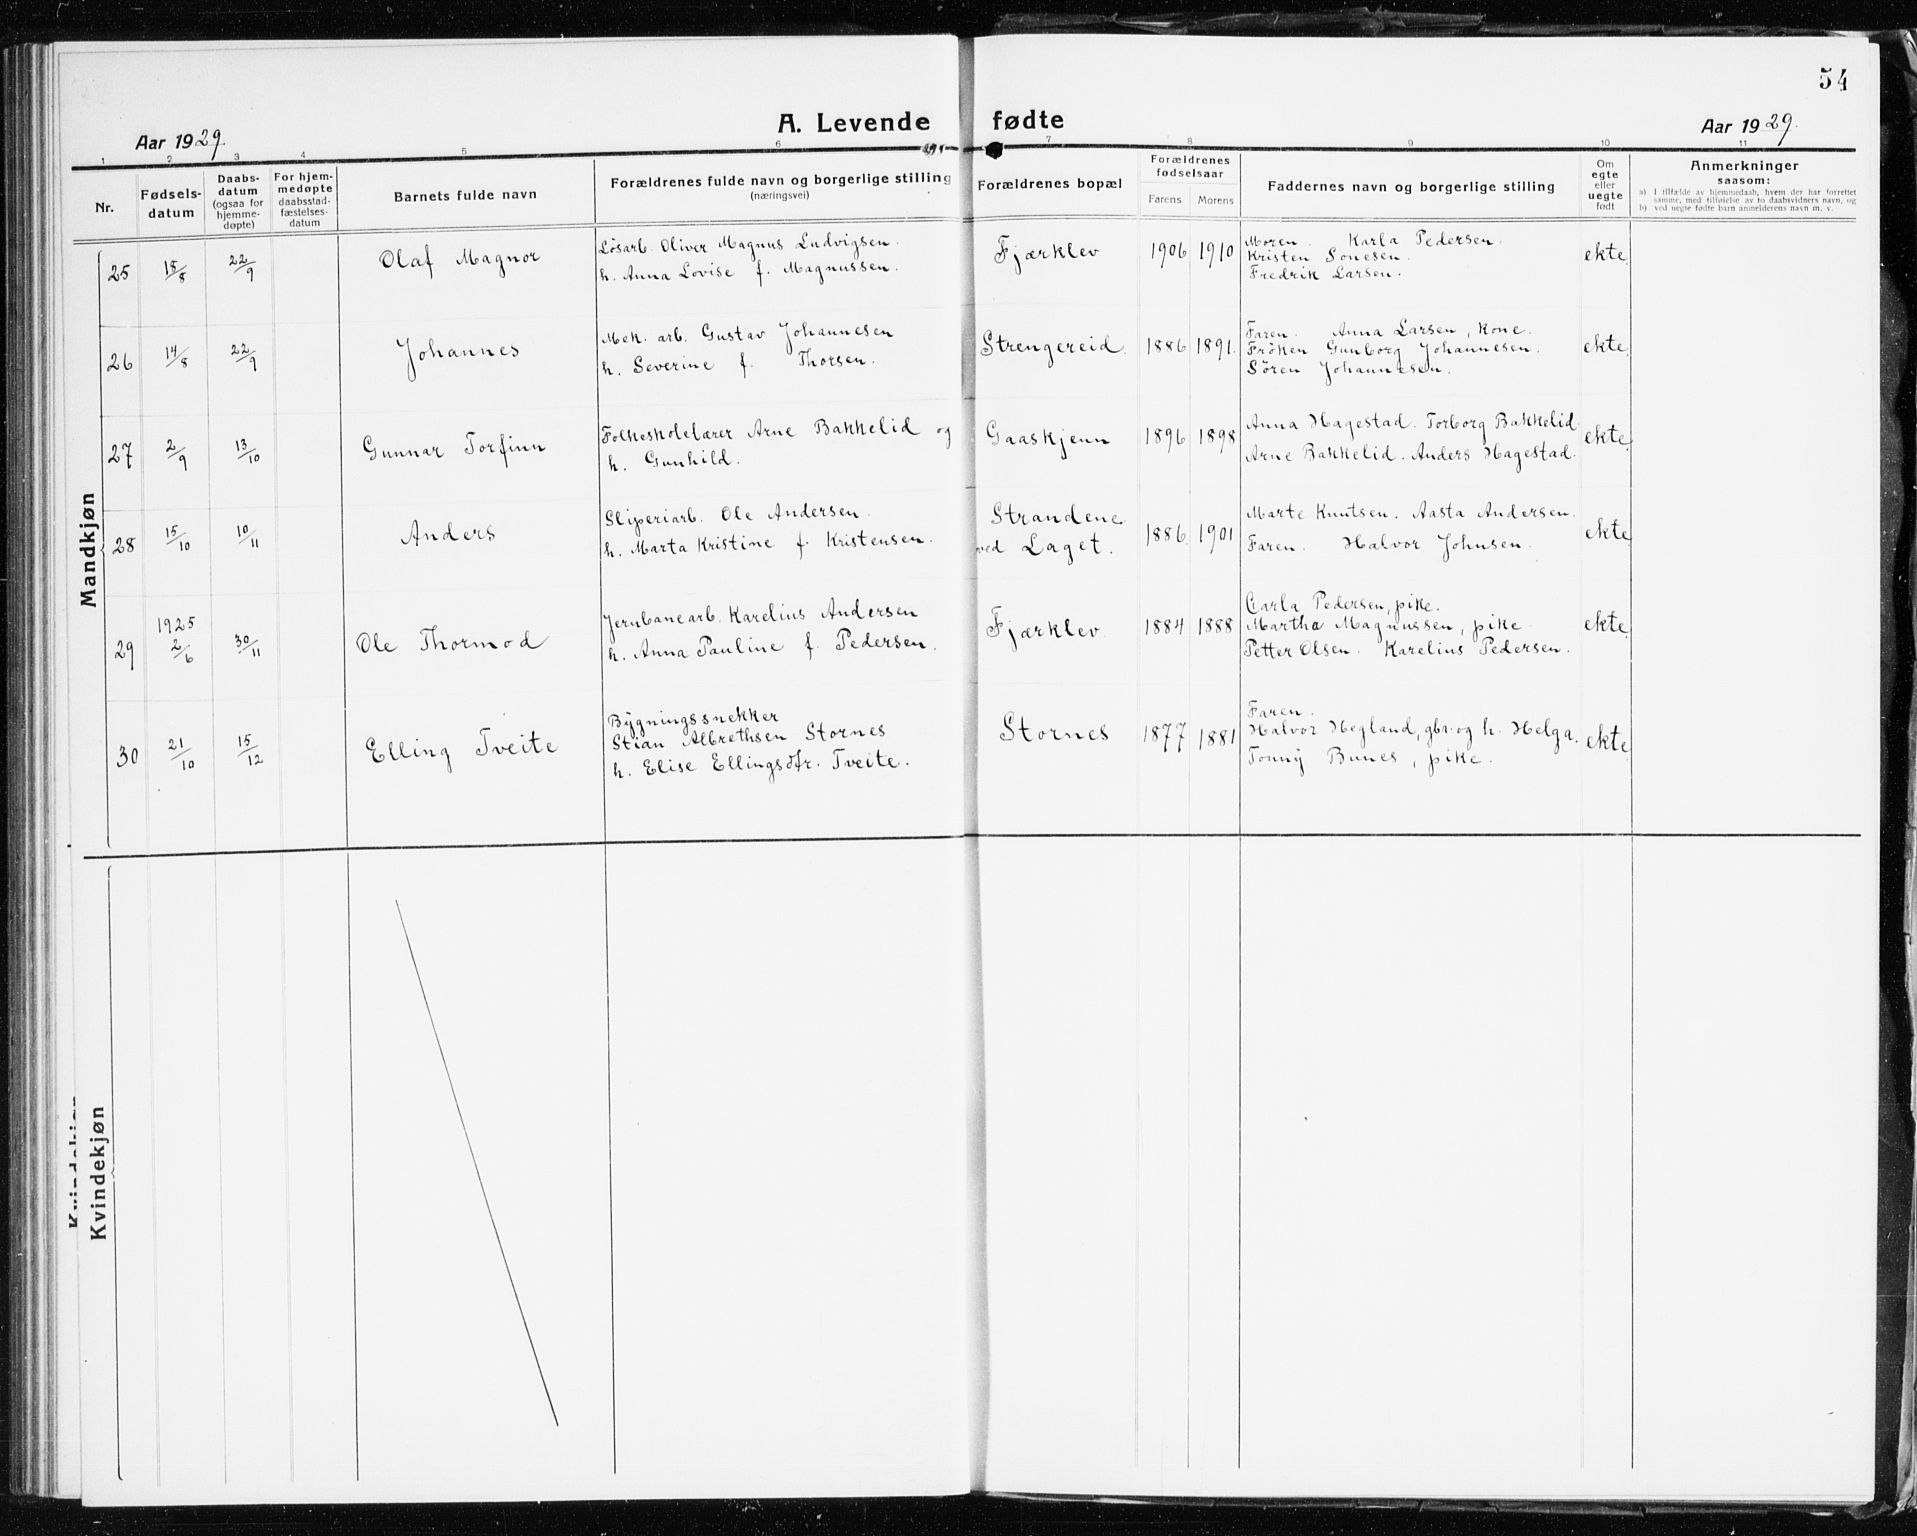 54
A. Levende fødte
Aar 1929.
Aar 1929.
1 2 3 4 5 6 7 8 9 10 11
Nr.
Fødsels-
datum
Daabs-
datum
(ogsaa for
hjemme-
døpte)
For hjem-
medøpte
daabsstad-
fæstelses-
datum
Barnets fulde navn
Forældrenes fulde navn og borgerlige stilling
(næringsvei)
Forældrenes bopæl
Forældrenes
fødselsaar
Farens Morens
Faddernes navn og borgerlige stilling
Om
egte
eller
uegte
født
Anmerkninger
saasom:
a) I tilfælde av hjemmedaab, hvem der har forrettet
samme, med tilføielse av to daabsvidners navn, og
b) ved uegte fødte barn anmelderens navn m. v.
Mandkjøn
25 15/8 22/9 Olaf Magnor
Løsarb. Oliver Magnus Ludvigsen.
h. Anna Lovise f. Magnussen.
Fjærklev 1906 1910
Moren. Karla Pedersen.
Kristen Sønesen.
Fredrik Larsen.
ekte.
26 14/8 22/9 Johannes
Mek. arb. Gustav Johannesen
h. Severine f. Thorsen.
Strengereid. 1886 1891.
Faren. Anna Larsen, kone.
Frøken Gunborg Johannesen.
Søren Johannesen.
ekte.
27 2/9 13/10 Gunnar Torfinn
Folkeskolelærer Arne Bakkelid og
h. Gunhild.
Gaaskjenn 1896 1898
Anna Hagestad. Torborg Bakkelid.
Arne Bakkelid. Anders Hagestad.
ekte.
28 15/10 10/11 Anders
Sliperiarb. Ole Andersen.
h. Marta Kristine f. Kristensen.
Strandene
ved Laget. 1886. 1901
Marte Knutsen. Aasta Andersen.
Faren. Halvor Johnsen.
ekte.
29 1925 2/6 30/11 Ole Thormod
Jernbanearb. Karelius Andersen
h. Anna Pauline f. Pedersen.
Fjærklev. 1884 1888
Carla Pedersen, pike.
Martha Magnussen, pike.
Petter Olsen. Karelius Pedersen.
ekte.
30 21/10 15/12 Elling Tveite
Bygningssnekker
Stian Albrethsen Stornes
h. Elise Ellingsdtr. Tveite.
Stornes 1877 1881
Faren.
Halvor Hegland, gbr. og h. Helga.
Tonny Bunes, pike.
ekte.
Kvindekjøn
Kvindekjøn